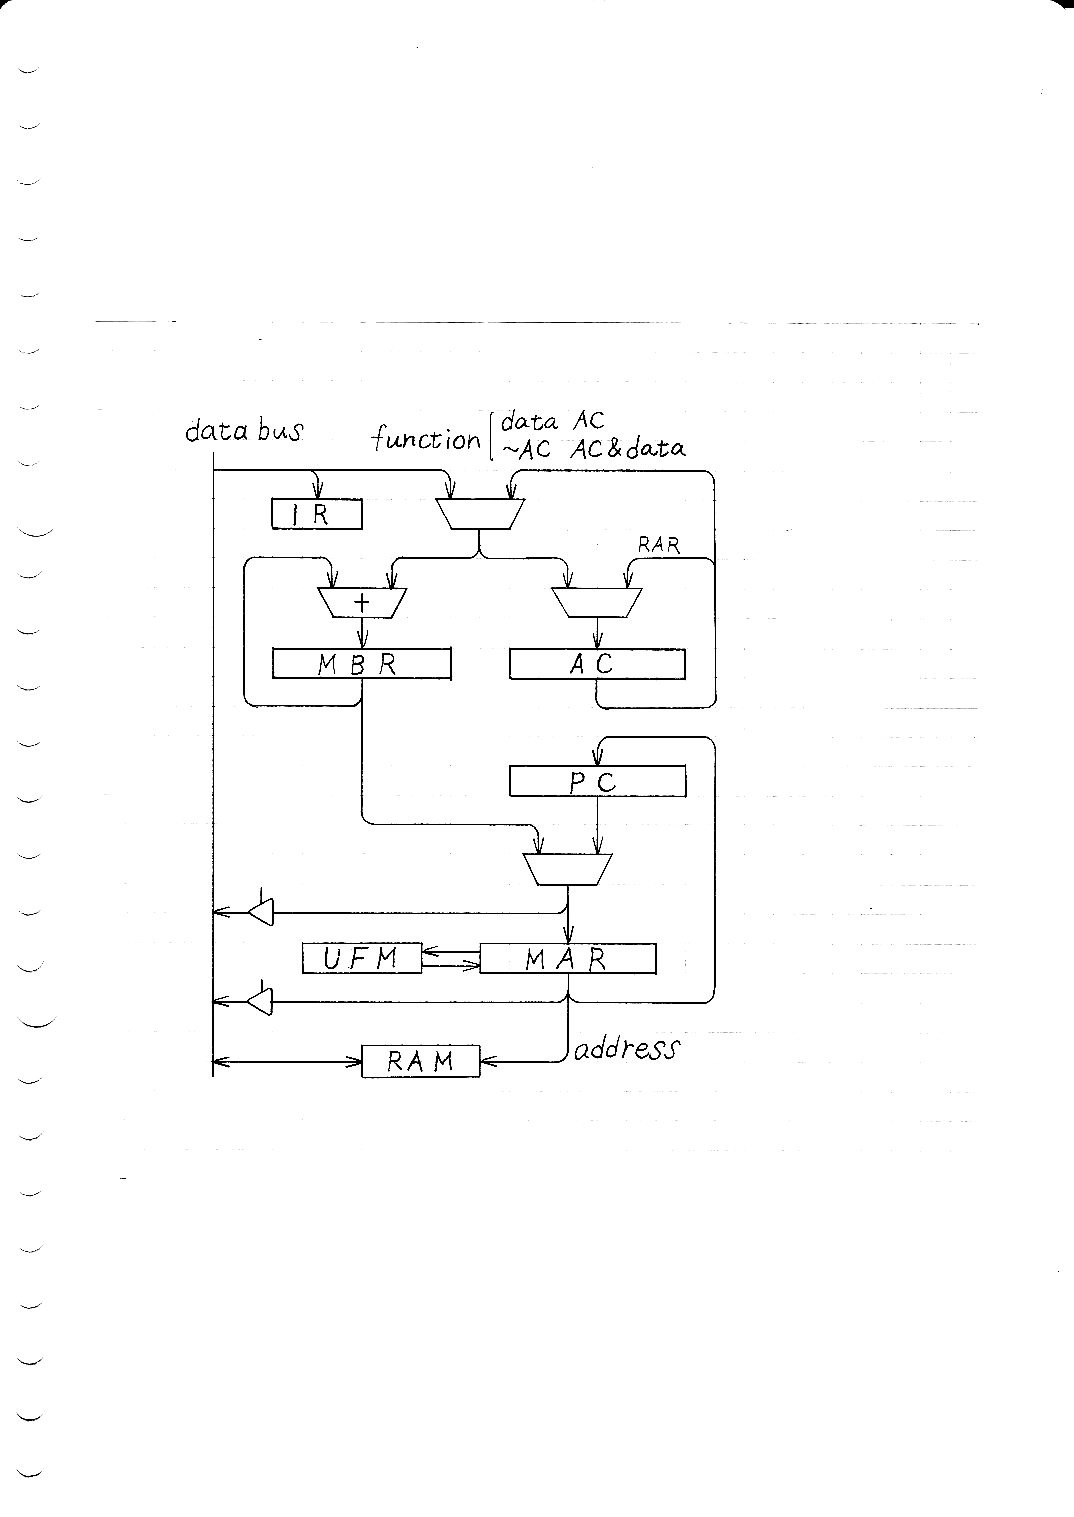 data bus
function data AC
~AC AC&data
IR
RAR
+
MBR
AC
PC
UFM
MAR
address
RAM